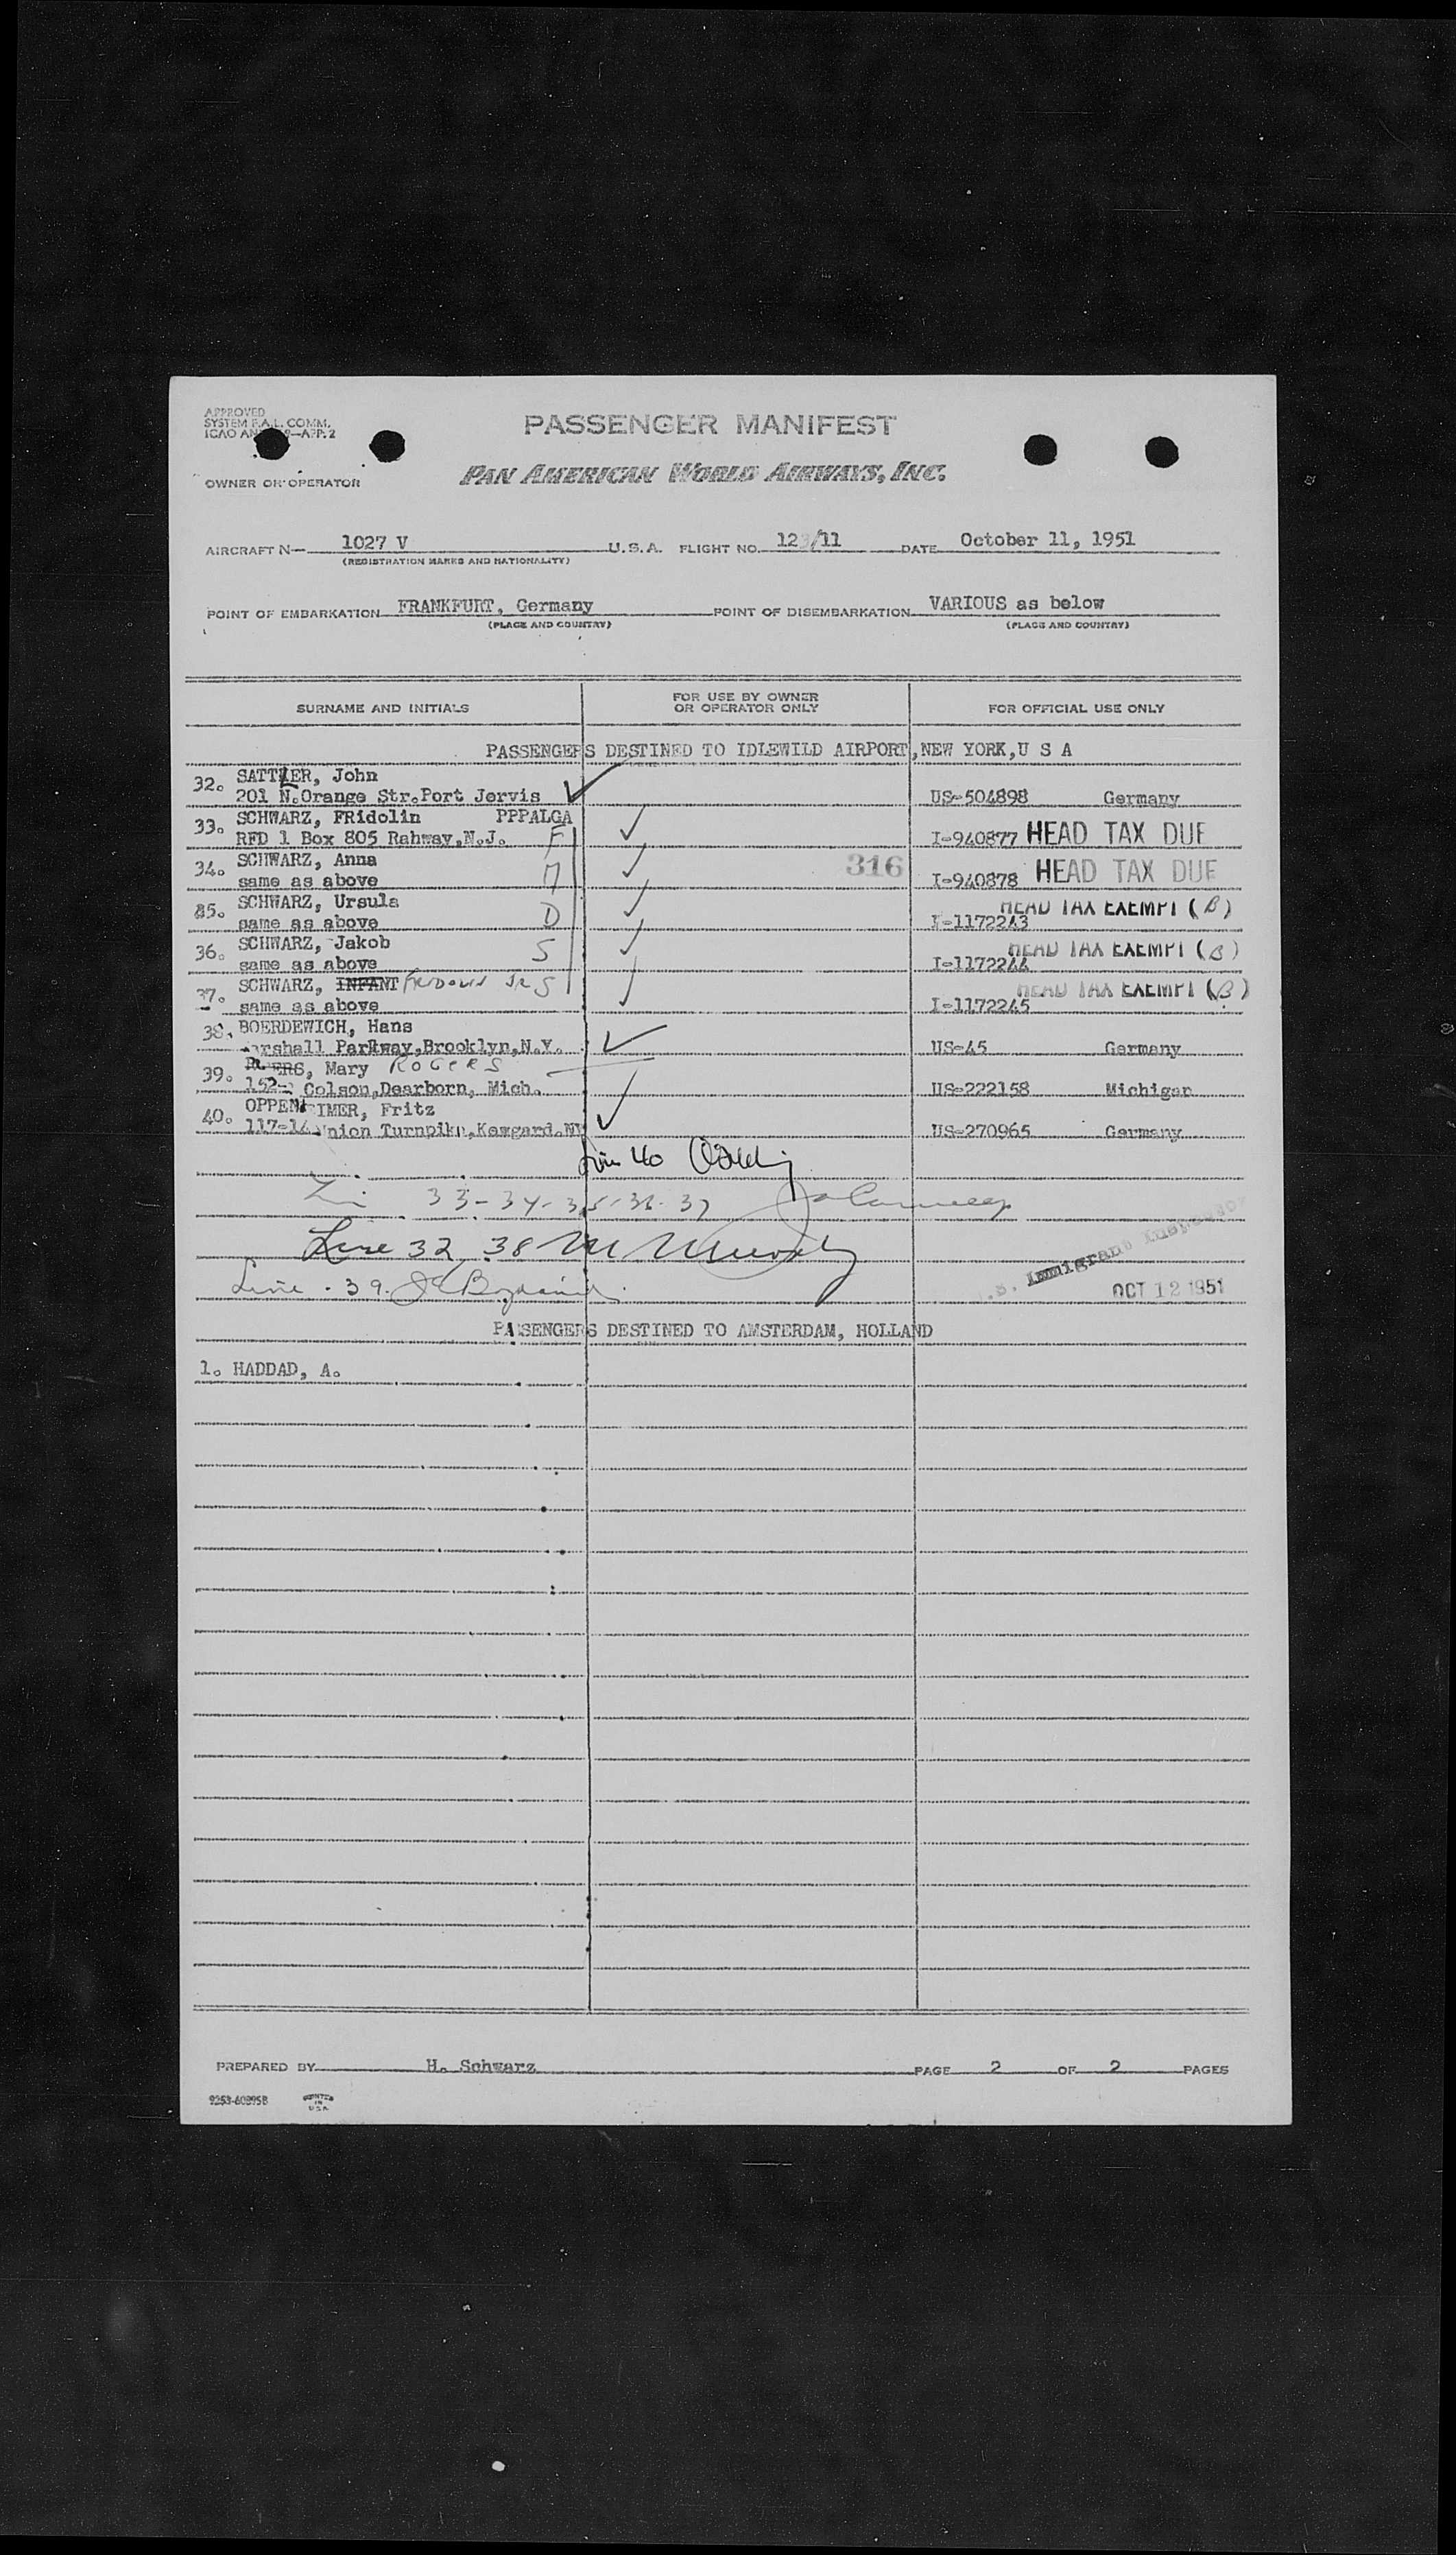 APPROVED
SYSTEM F.A.L. COMM.
ICAO AN 9—APP. 2
PASSENGER MANIFEST
OWNER OR OPERATOR
PAN AMERICAN WORLD AIRWAYS, INC.
AIRCRAFT N— 1027 V U.S.A. FLIGHT NO. 123/11 DATE October 11, 1951
(REGISTRATION MARKS AND NATIONALITY)
POINT OF EMBARKATION FRANKFURT, Germany POINT OF DISEMBARKATION VARIOUS as below
(PLACE AND COUNTRY) (PLACE AND COUNTRY)
SURNAME AND INITIALS FOR USE BY OWNER OR OPERATOR ONLY FOR OFFICIAL USE ONLY
PASSENGERS DESTINED TO IDLEWILD AIRPORT, NEW YORK, U S A
32. SATTLER, John
201 N.Orange Str.Port Jervis US-504898 Germany
33. SCHWARZ, FRidolin PPPALGA
RFD 1 Box 805 Rahway,N.J. F I-940877 HEAD TAX DUE
34. SCHWARZ, Anna 316
same as above M I-940878 HEAD TAX DUE
35. SCHWARZ, Ursula HEAD TAX EXEMPT (B)
same as above D I-1172243
36. SCHWARZ, Jakob HEAD TAX EXEMPT (B)
same as above S I-1172244
37. SCHWARZ, INFANT FRIDOLIN JR S HEAD TAX EXEMPT (B)
same as above I-1172245
38. BOERDEWICH, Hans
arshall Parkway,Brooklyn,N.Y. US-45 Germany
39. ROGERS, Mary ROGERS
152- Colson,Dearborn, Mich. US-222158 Michigan
40. OPPENHEIMER, Fritz
117-14 Union Turnpike,Kewgard.NY US-270965 Germany
Line 40
33-34-35-36-37
Line 32 38 M
Line 39.
U.S. Immigrant Inspector
OCT 12 1951
PASSENGERS DESTINED TO AMSTERDAM, HOLLAND
1. HADDAD, A.
PREPARED BY H. Schwarz PAGE 2 OF 2 PAGES
9253-60895B PRINTED IN U.S.A.